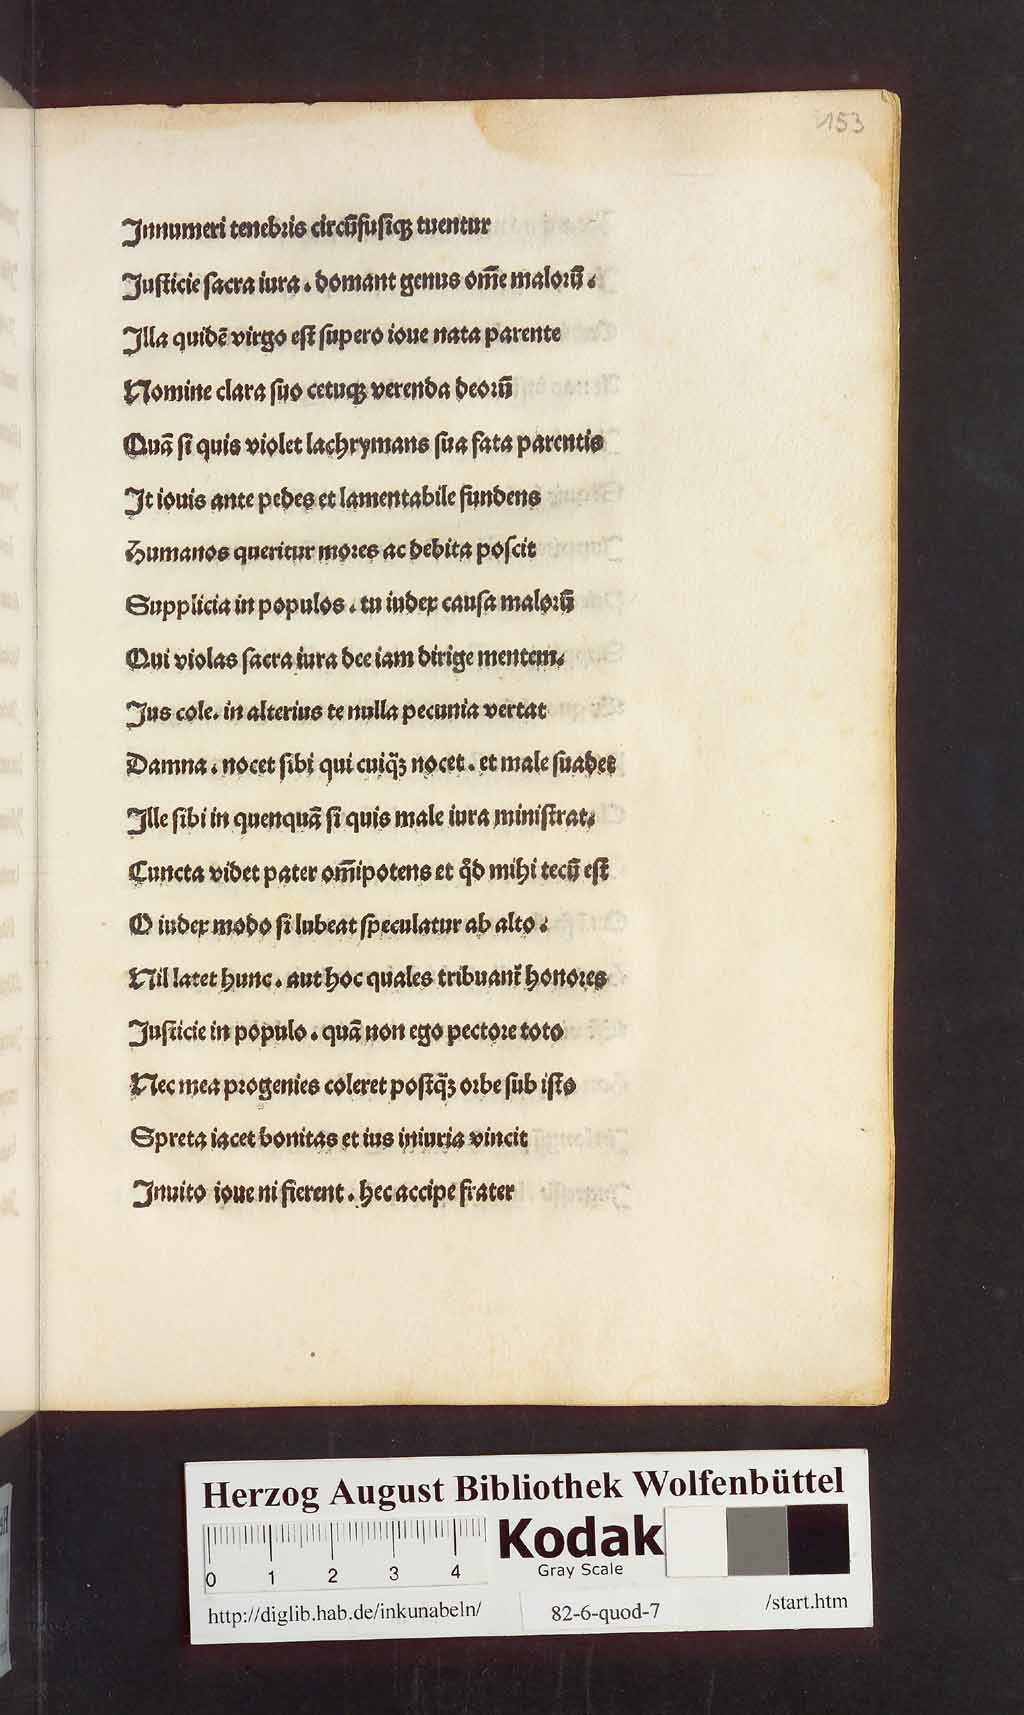 153
Innumeri tenebris circūfusiqꝫ tuentur
Justicie sacra iura . domant genus om̄e malorū .
Illa quidē virgo est supero ioue nata parente
Nomine clara suo cetuqꝫ verenda deorū
Quā si quis violet lachrymans sua fata parentis
It iouis ante pedes et lamentabile fundens
Humanos queritur mores ac debita poscit
Supplicia in populos . tu iudex causa malorū
Qui violas sacra iura dee iam dirige mentem.
Jus cole. in alterius te nulla pecunia vertat
Damna . nocet sibi qui cuiq̄ꝫ nocet . et male suadet
Ille sibi in quenquā si quis male iura ministrat.
Cuncta videt pater om̄ipotens et qd̛ mihi tecū est
O iudex modo si lubeat speculatur ab alto .
Nil latet hunc . aut hoc quales tribuant̛ honores
Justicie in populo . quā non ego pectore toto
Nec mea progenies coleret postq̄ꝫ orbe sub isto
Spreta iacet bonitas et ius iniuria vincit
Inuito ioue ni fierent . hec accipe frater
Herzog August Bibliothek Wolfenbüttel
0 1 2 3 4
Kodak
Gray Scale
http://diglib.hab.de/inkunabeln/ 82-6-quod-7 /start.htm